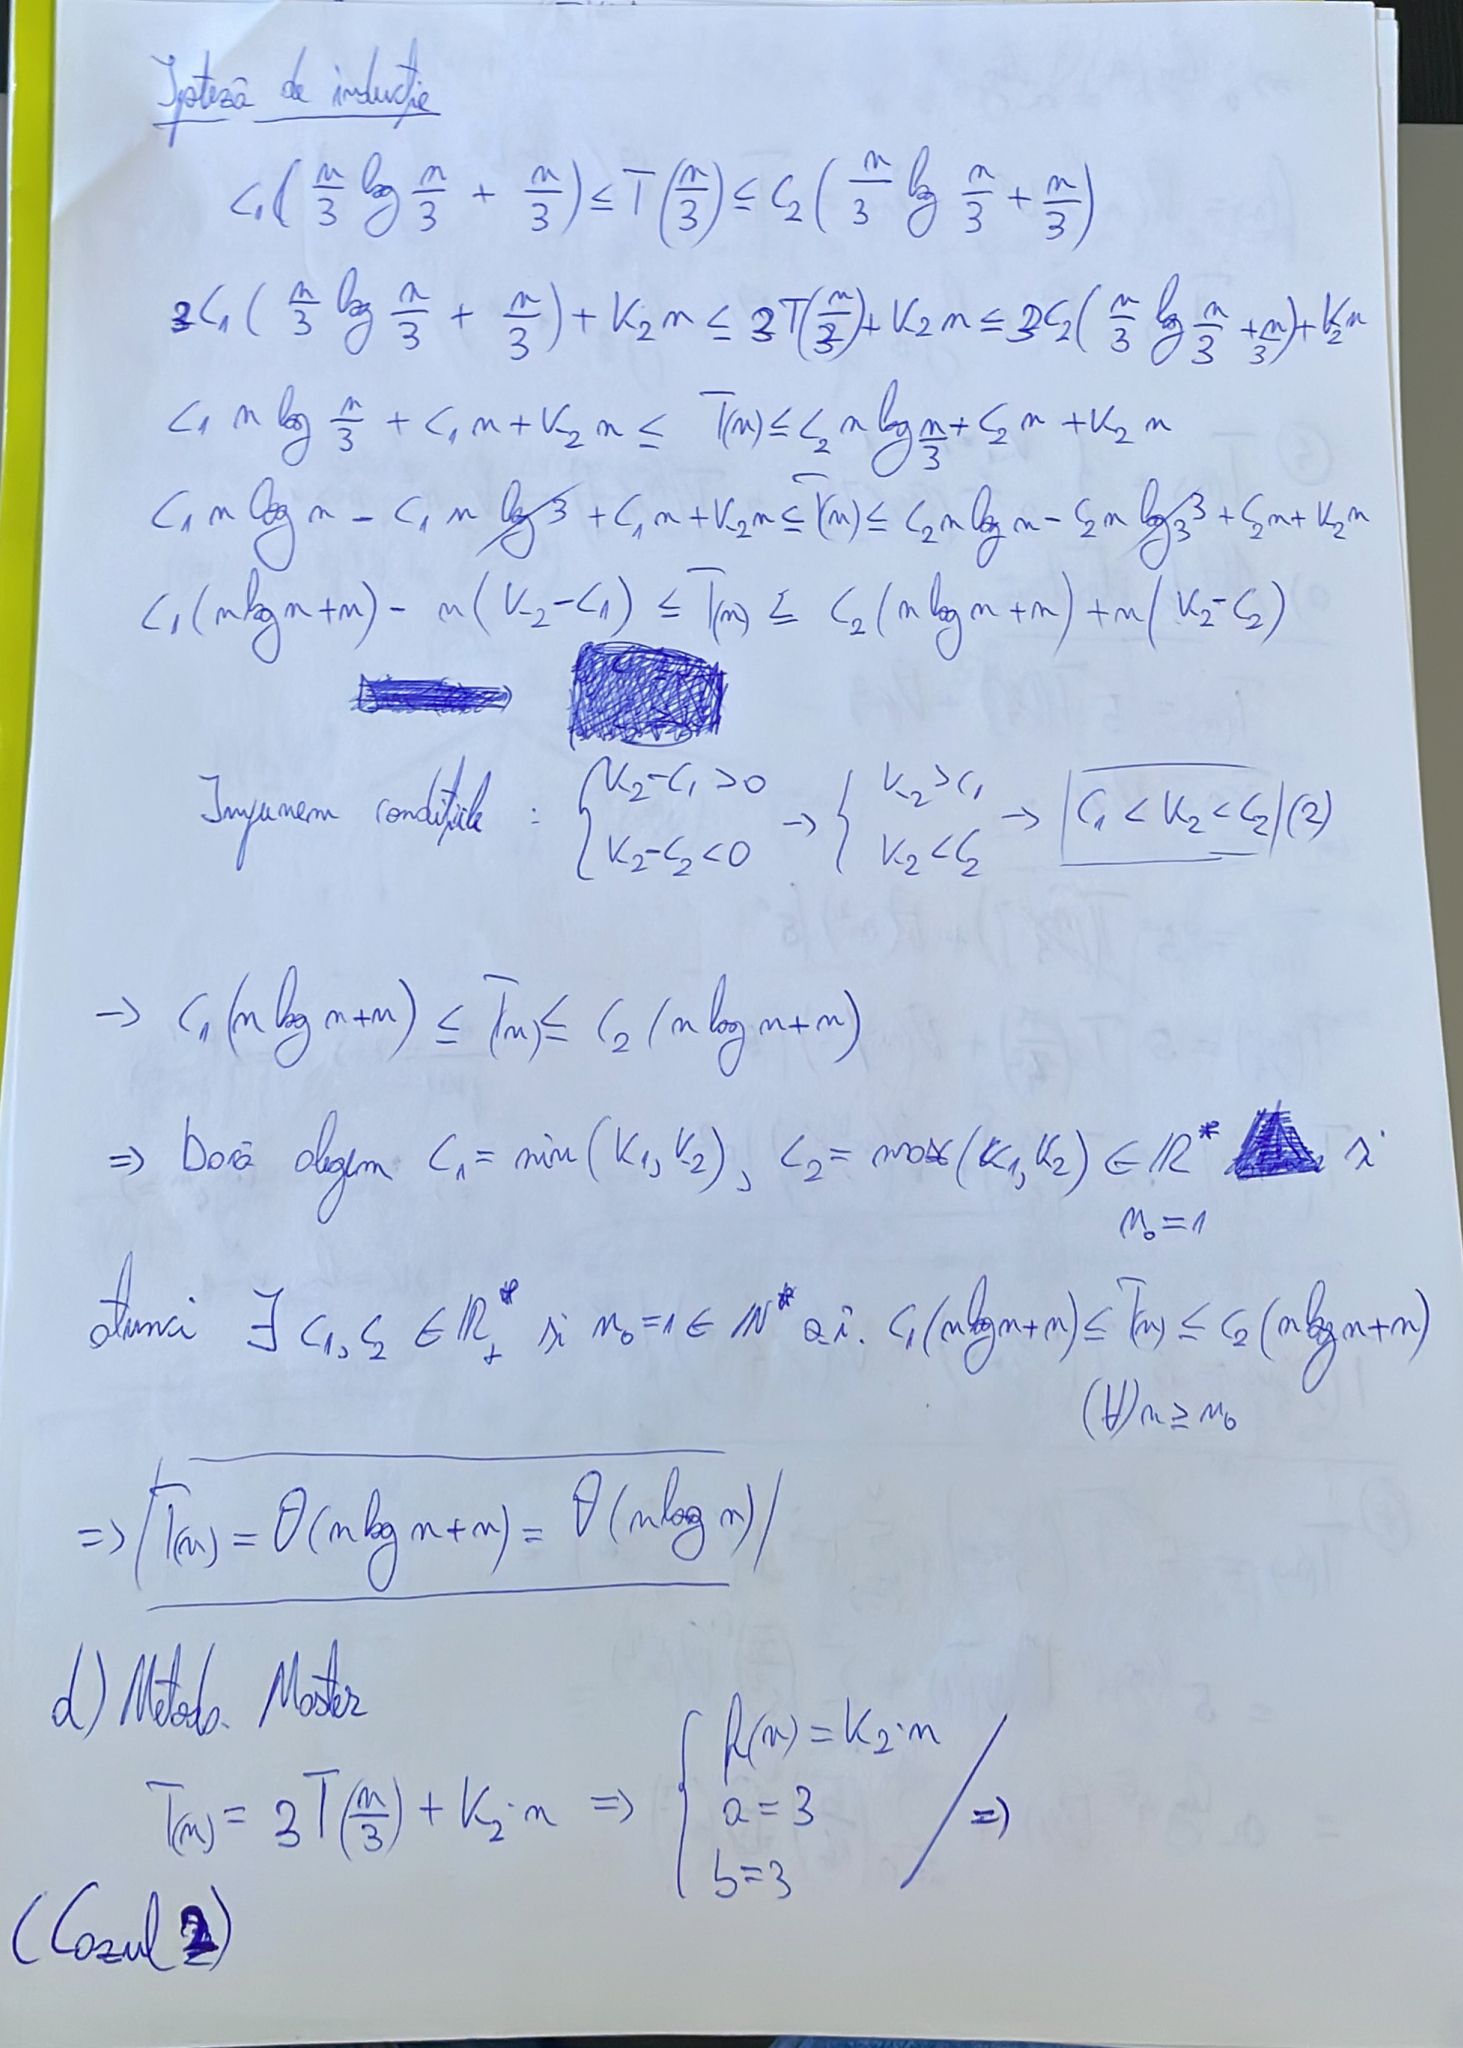 Ipoteză de inducție
C₁(n/3 log n/3 + n/3) ≤ T(n/3) ≤ C₂(n/3 log n/3 + n/3)
3C₁(n/3 log n/3 + n/3) + K₂n ≤ 3T(n/3) + K₂n ≤ 3C₂(n/3 log n/3 + n/3) + K₂n
C₁ n log n/3 + C₁n + K₂n ≤ T(n) ≤ C₂ n log n/3 + C₂n + K₂n
C₁ n log n - C₁ n log 3 + C₁n + K₂n ≤ T(n) ≤ C₂ n log n - C₂ n log₃ 3 + C₂n + K₂n
C₁(n log n + n) - n(K₂ - C₁) ≤ T(n) ≤ C₂(n log n + n) + n(K₂ - C₂)
Impunem condițiile : { K₂ - C₁ > 0 ; K₂ - C₂ < 0 → { K₂ > C₁ ; K₂ < C₂ → C₁ < K₂ < C₂ (2)
→ C₁(n log n + n) ≤ T(n) ≤ C₂(n log n + n)
⇒ Dacă alegem C₁ = min(K₁, K₂), C₂ = max(K₁, K₂) ∈ ℝ* și
n₀ = 1
atunci ∃ C₁, C₂ ∈ ℝ₊* și n₀ = 1 ∈ ℕ* a.î. C₁(n log n + n) ≤ T(n) ≤ C₂(n log n + n)
(∀) n ≥ n₀
⇒ T(n) = θ(n log n + n) = θ(n log n)
d) Metoda Master
T(n) = 3T(n/3) + K₂·n ⇒ { f(n) = K₂·n ; a = 3 ; b = 3 / ⇒
(Cazul 2)